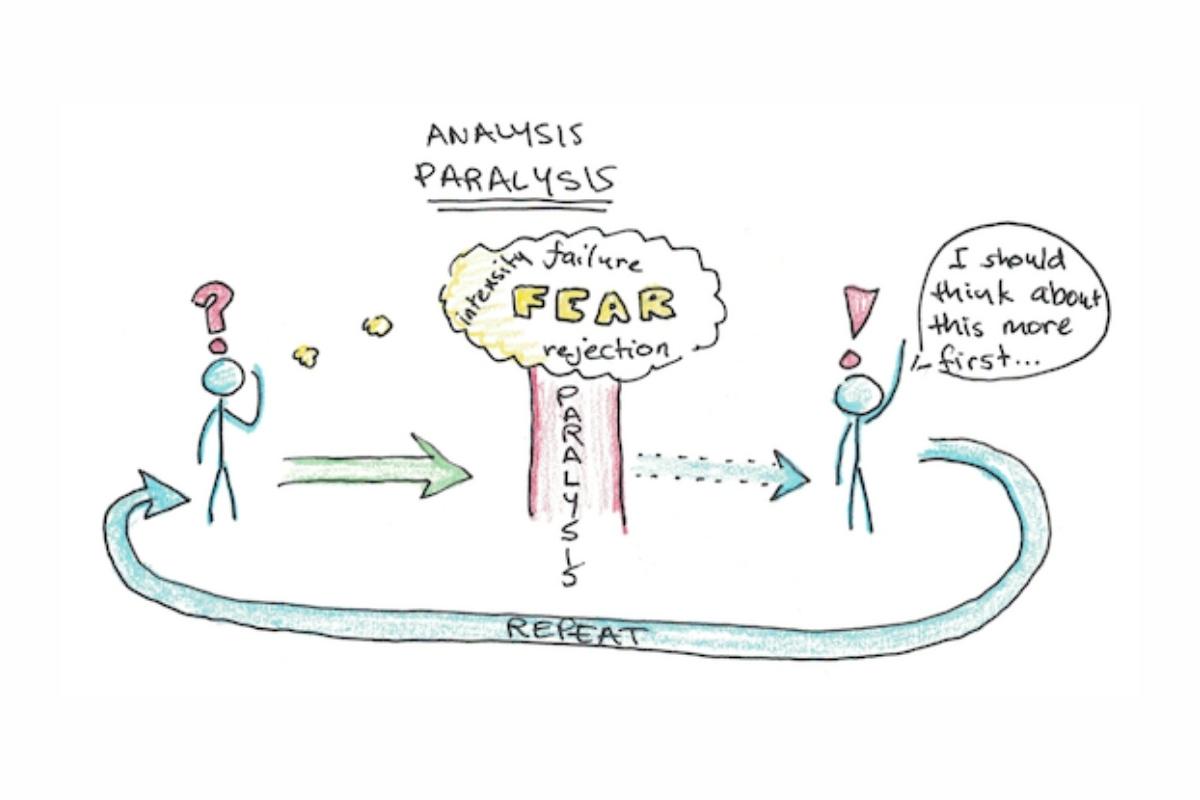 ANALYSIS
PARALYSIS
intensity
failure
FEAR
rejection
PARALYSIS
?
!
I should
think about
this more
first...
REPEAT